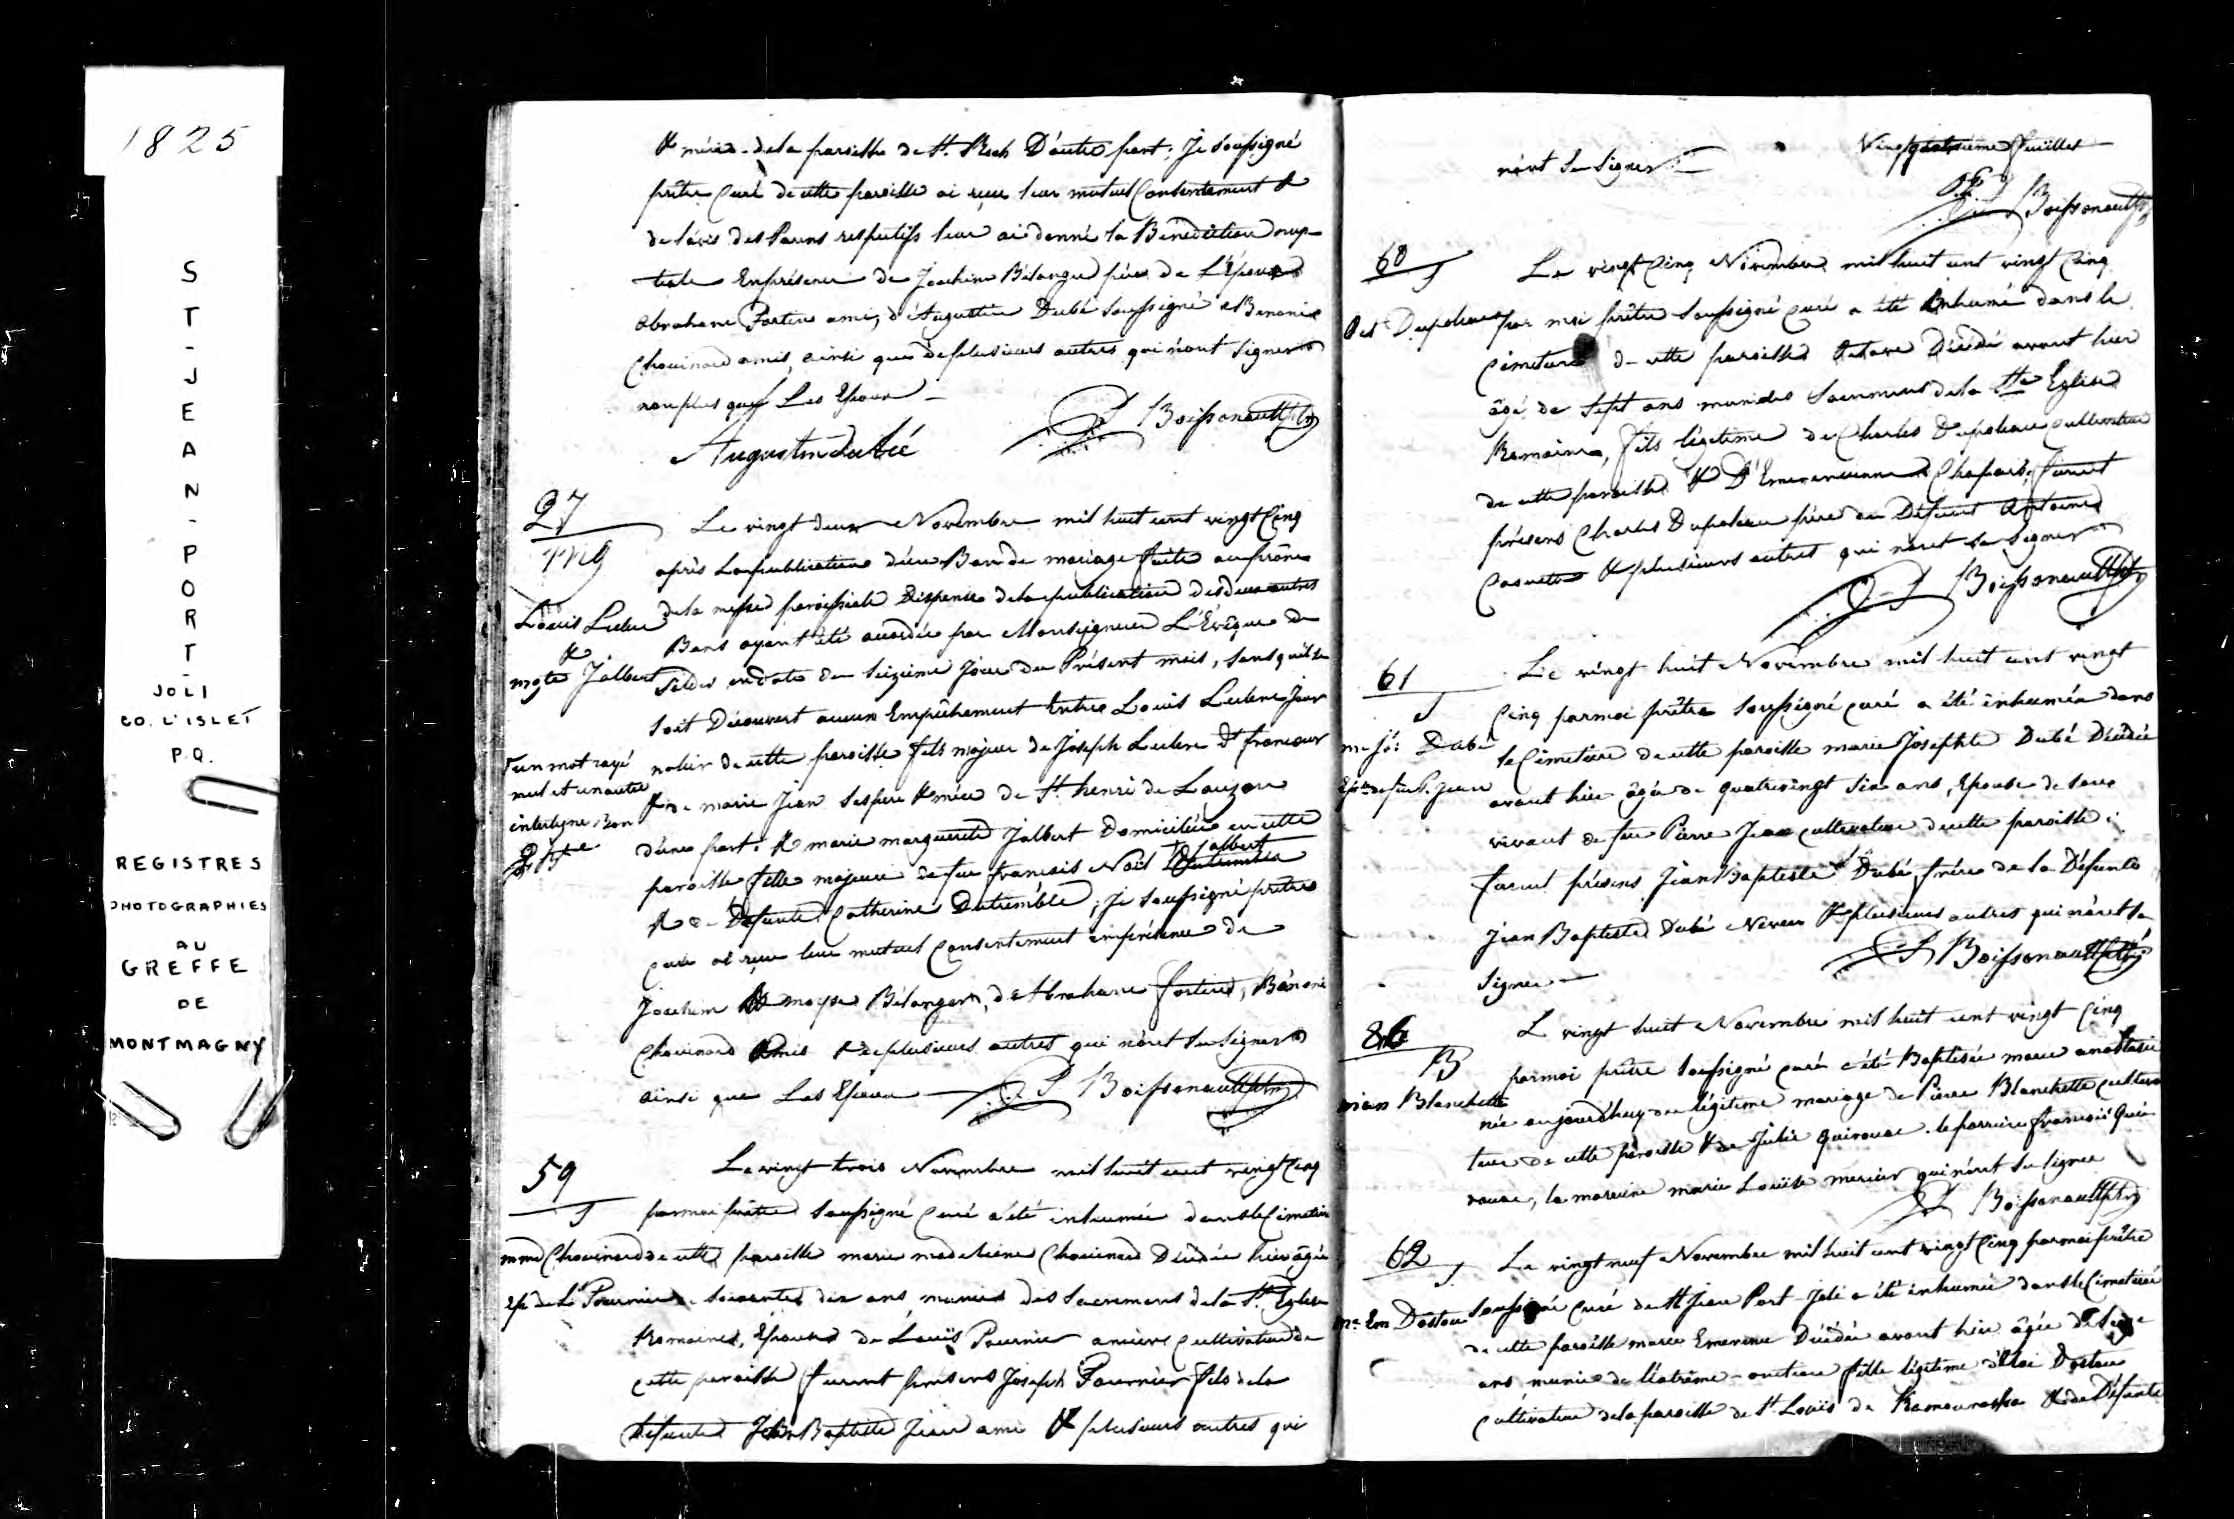 1825
ST-JEAN-PORT-
JOLI
CO. L'ISLET
P.Q.
REGISTRES
PHOTOGRAPHIES
AU
GREFFE
DE
MONTMAGNY
& mère de la paroisse de St. Roch D'autre part; Je soussigné
prêtre Curé de cette paroisse ai reçu leur mutuel Consentement &
de l'avis des Parens respectifs leur ai donné la Bénédiction nup-
tiale En présence de Joachim Bélanger père de L'Epouse
Abraham Fortin ami, d'Augustin Dubé soussigné & Benonie
Chouinard amis, ainsi que de plusieurs autres qui n'ont signer
non plus que Les Epoux
Augustin dubé Boissonnault ptre
27
mg
Louis Leclerc
&
mgte Jalbert
un mot rayé
nul et un autre
interligne Bon
Le vingt deux Novembre mil huit cent vingt Cinq
après La publication d'un Ban de mariage faite au prône
de la messe paroissiale Dispense de la publication des deux autres
Bans ayant été accordée par Monseigneur L'Evêque de
en date du Seizième Jour du Présent mois, sans qu'il se
soit Découvert aucun Empêchement Entre Louis Leclerc Jour
nalier de cette paroisse fils majeur de Joseph Leclerc dt francoeur
& de marie Jean ses père & mère de St. henri de Lauzon
d'une part; & marie marguerite Jalbert Domiciliée en cette
Jalbert
paroisse fille majeure de feu francois Noël Dutremble
& de Defunte Catherine Dutremble; Je soussigné prêtre
curé ai reçu leur mutuel Consentement en présence de
Joachim & moyse Bélanger, de Abraham fortin, Bénoni
Chouinard Amis & de plusieurs autres qui n'ont su signer
ainsi que Les Epoux Boissonnault ptre
59
S
mmd Chouinard
Ep. de Ls Fournier
Le vingt trois Novembre mil huit cent vingt Cinq
par moi prêtre soussigné Curé a été inhumée dans le Cimetière
de cette paroisse marie madeleine Chouinard Décédée hier âgée
de soixante dix ans, munie des Sacremens de la Ste Eglise
Romaine, Epouse de Louis Fournier ancien Cultivateur de
cette paroisse furent présens Joseph Fournier fils de la
Défunte Jean Baptiste Jean ami & plusieurs autres qui
n'ont su signer
Vingtquatrième feuillet
Boissonnault ptre
60
S
Le vingt Cinq Novembre mil huit cent vingt Cinq
par moi prêtre soussigné curé a été Inhumé dans le
Cimetière de cette paroisse Octave Décédé avant hier
âgé de sept ans muni des Sacremens de la Ste Eglise
Romaine, fils légitime de Charles Dupoleau Cultivateur
de cette paroisse & D'Emerencienne Chapais; furent
présens Charles Dupoleau père du Défunt Antoine
& plusieurs autres qui n'ont su signer
Boissonnault ptre
61
S
m Jos: Dubé
Epse de feu P. Jean
Le vingt huit Novembre mil huit cent vingt
Cinq par moi prêtre soussigné curé a été inhumée dans
le Cimetière de cette paroisse marie Josephte Dubé Décédée
avant hier âgée de quatrevingt six ans, Epouse de son
vivant de feu Pierre Jean cultivateur de cette paroisse;
furent présens Jean Baptiste Dubé frère de la Défunte
Jean Baptiste Dubé Neveu & plusieurs autres qui n'ont su
signer
Boissonnault ptre
86
B
Blanchette
Le vingt huit Novembre mil huit cent vingt Cinq
par moi prêtre soussigné curé a été Baptisée marie anastasie
née aujourd'huy du légitime mariage de Pierre Blanchette Cultiva
teur de cette paroisse & de Julie Quirouac. le parrain francois Qui
rouac, la marraine marie Louise mercier qui n'ont su signer
Boissonnault ptre
62
S
me Em Dastou
Le vingt neuf Novembre mil huit cent vingt Cinq par moi prêtre
soussigné curé de St Jean Port-Joli a été inhumée dans le Cimetière
de cette paroisse marie Emerence Décédée avant hier âgée de
ans munie de l'extrême-onction fille légitime d'Eloi Dastou
cultivateur de la paroisse de St. Louis de Kamouraska & de Défunte